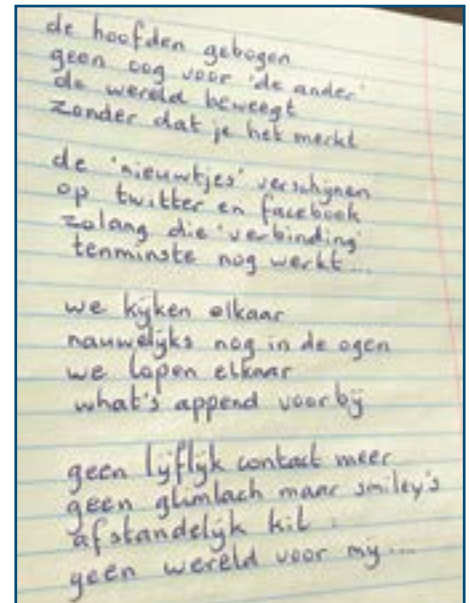 de hoofden gebogen
geen oog voor 'de ander'
de wereld beweegt
zonder dat je het merkt
de 'nieuwtjes' verschijnen
op twitter en facebook
zolang die 'verbinding'
tenminste nog werkt...
we kijken elkaar
nauwelijks nog in de ogen
we lopen elkaar
what's append voorbij
geen lijflijk contact meer
geen glimlach maar smiley's
afstandelijk kil.
geen wereld voor mij....